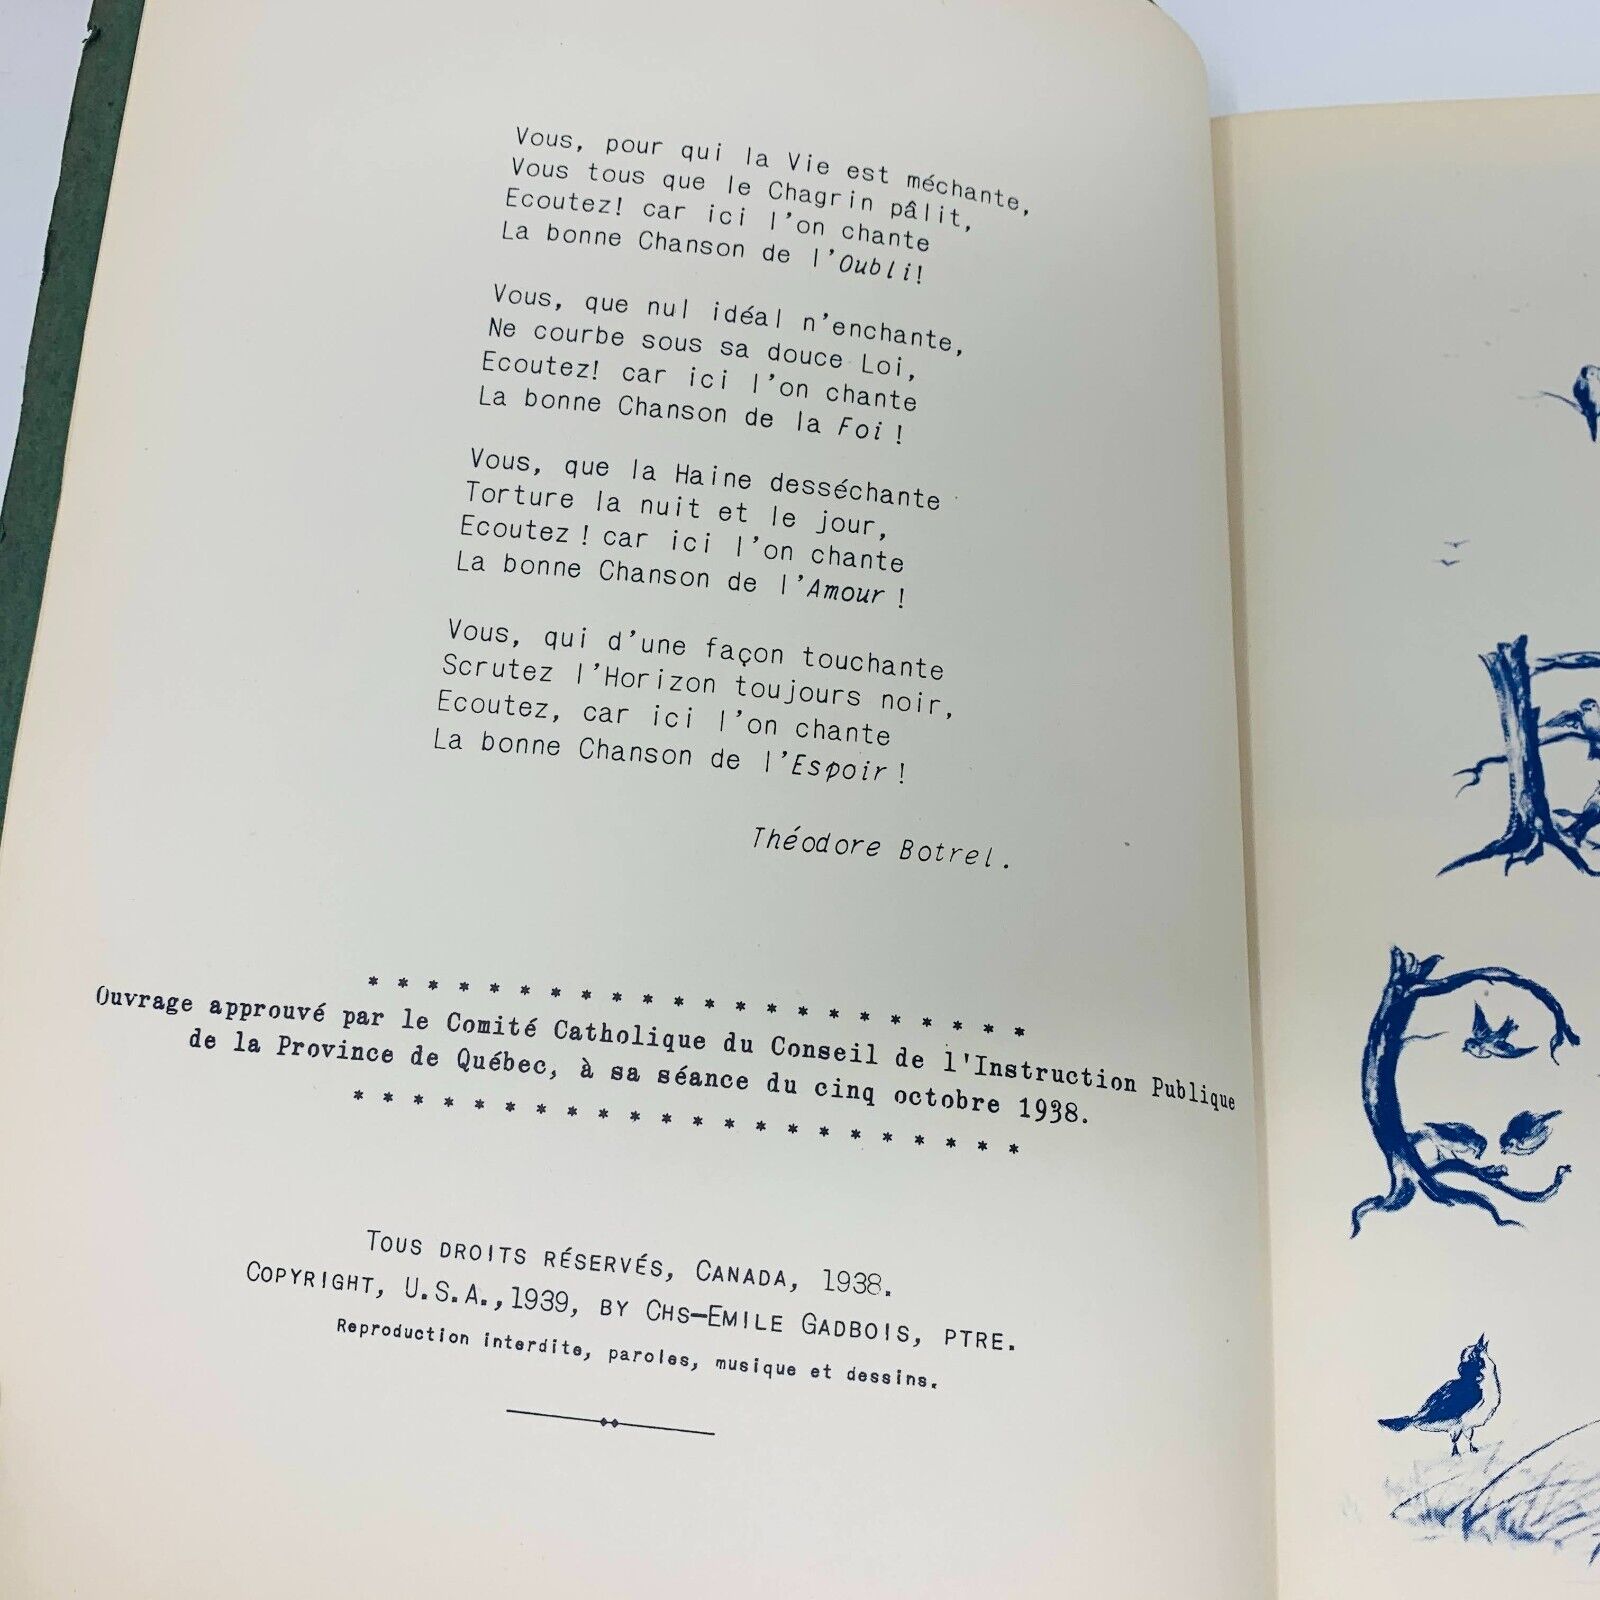 Vous, pour qui la Vie est méchante,
Vous tous que le Chagrin pâlit,
Ecoutez! car ici l'on chante
La bonne Chanson de l'Oubli!
Vous, que nul idéal n'enchante,
Ne courbe sous sa douce Loi,
Ecoutez! car ici l'on chante
La bonne Chanson de la Foi !
Vous, que la Haine desséchante
Torture la nuit et le jour,
Ecoutez ! car ici l'on chante
La bonne Chanson de l'Amour !
Vous, qui d'une façon touchante
Scrutez l'Horizon toujours noir,
Ecoutez, car ici l'on chante
La bonne Chanson de l'Espoir !
Théodore Botrel.
* * * * * * * * * * * * * * * * * * * * * *
Ouvrage approuvé par le Comité Catholique du Conseil de l'Instruction Publique
de la Province de Québec, à sa séance du cinq octobre 1938.
* * * * * * * * * * * * * * * * * * * * * *
TOUS DROITS RÉSERVÉS, CANADA, 1938.
COPYRIGHT, U.S.A., 1939, BY CHS-EMILE GADBOIS, PTRE.
Reproduction interdite, paroles, musique et dessins.